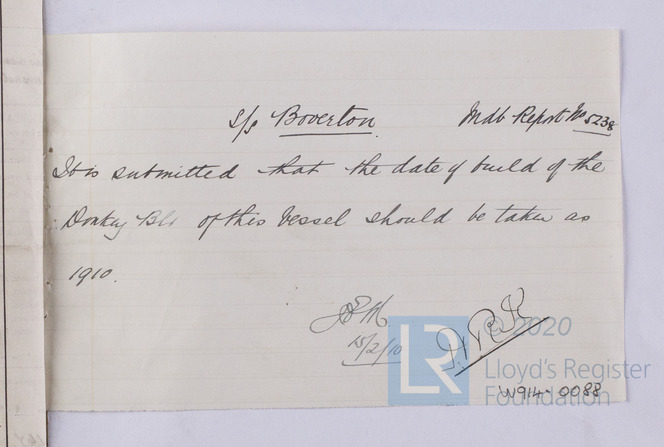 s/s Boverton. Mdb Report No 5238
It is submitted that the date of build of the
Donkey Blr of this Vessel should be taken as
1910.
15/2/10
LR © 2020
Lloyd's Register
Foundation
W914-0088